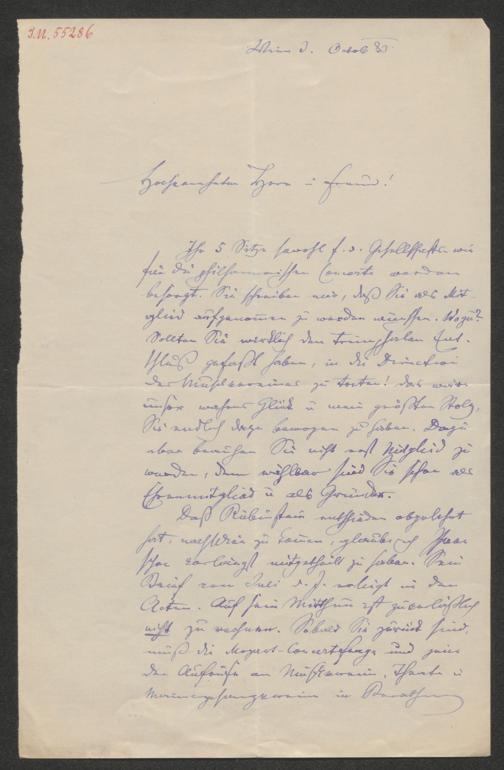 I.N. 55286
Wien 3. Octob 83
Hochverehrter Herr u Freund!
Ihre 5 Sitze sowohl f. d. Gesellschafts- wie
für die philharmonischen Concerte werden
besorgt. Sie schreiben mir, daß Sie als Mit-
glied aufgenommen zu werden wünschen. Wozu?
Sollten Sie wirklich den Ent-
schluß gefaßt haben, in die Direction
des Musikvereines zu treten! das wäre
unser wahres Glück u mein größter Stolz,
Sie endlich dazu bewogen zu haben. Dazu
aber brauchen Sie nicht erst Mitglied zu
werden, denn wählbar sind Sie schon als
Ehrenmitglied u als Gründer.
Daß Rubinstein entschieden abgelehnt
hat, nach Wien zu kommen, glaube ich Ihnen
schon mitgetheilt zu haben. Sein
Brief vom Juli d. J. erliegt in den
Acten. Auf sein Mitthun ist zuverläßlich
nicht zu rechnen. Sobald Sie zurück sind,
muß die Mozart-Concertfrage und zwar
der Aufrufe an Musikverein, Theater u
Männergesangverein in Berathung